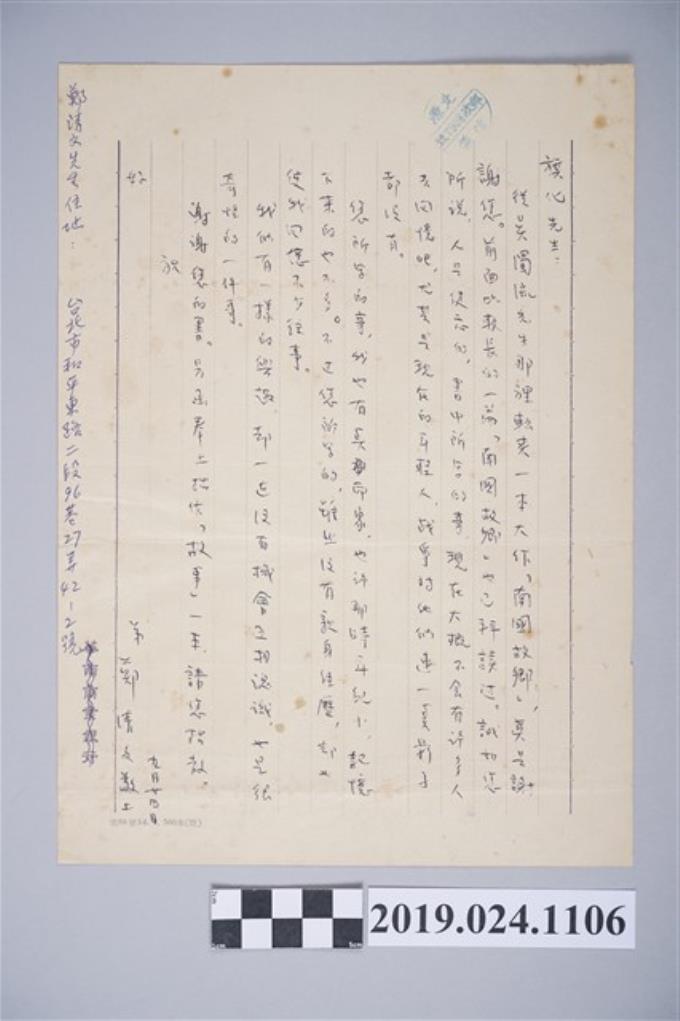 旗化先生：
從吳濁流先生那裡轉來一本大作「南國故鄉」，真是謝
謝您。前面比較長的一篇「南國故鄉」也已拜讀过。誠如您
所説，人是健忘的，書中所写的事，現在大概不会有许多人
去回憶吧，尤其是現在的年輕人，战爭时他们連一莫影子
都没有。
您所写的事，我也有莫印象，也许那時年紀小，記憶
下來的也不多。不过您所写的，雖然没有親身経歷，却也
使我回憶不少往事。
我们有一樣的興趣，却一直没有機會互相認識，也是很
奇怪的一件事。
謝謝您的書。另函奉上拙作「故事」一本，請您指教。
祝
好
弟
鄭清文敬上
九月廿四日
鄭清文先生住址：
台北市和平東路二段96巷27弄42-2號
2019.024.1106